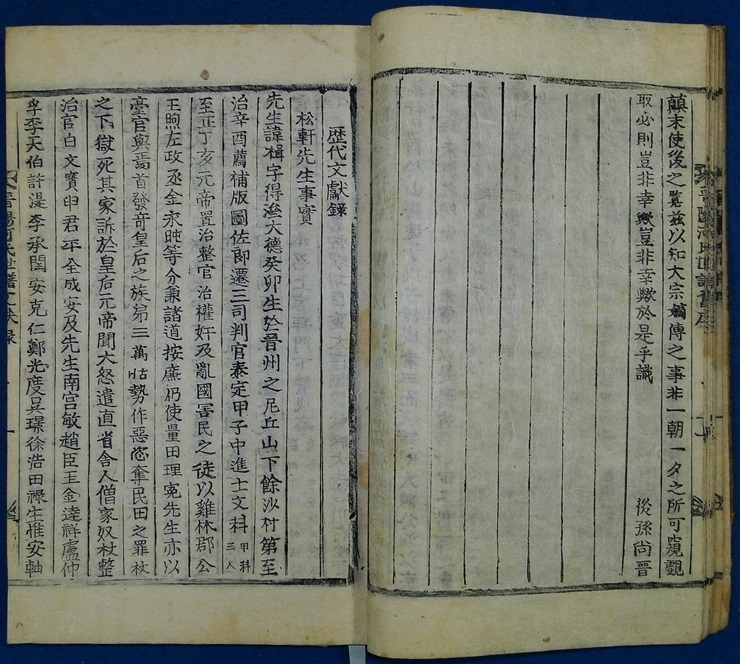 顛末使後之覽玆以知大宗嫡傳之事非一朝一夕之所可窺觀
取必則豈非幸歟豈非幸歟於是乎識
從孫尙晋
歷代文獻錄
松軒先生事實
先生諱楫字得濟大德癸卯生於晋州之尼丘山下餘沙村第至
治辛酉薦補版圖佐郞遷三司判官泰定甲子中進士文科甲科三人
至正丁亥元帝置治整官治權奸及亂國害民之徒以雞林郡公
王煦左政丞金永旽等分兼諸道按廉仍使量田理寃先生亦以
臺官與焉首發奇皇后之族弟三萬怙勢作惡恣奪民田之罪杖
之下獄死其家訴於皇后元帝聞大怒遣直省舍人僧家奴杖整
治官白文寶申君平全成安及先生南宮敏趙臣玉金達祥盧仲
孚李天伯許湜李承閏安克仁鄭光度吳璟徐浩田祿生惟安軸